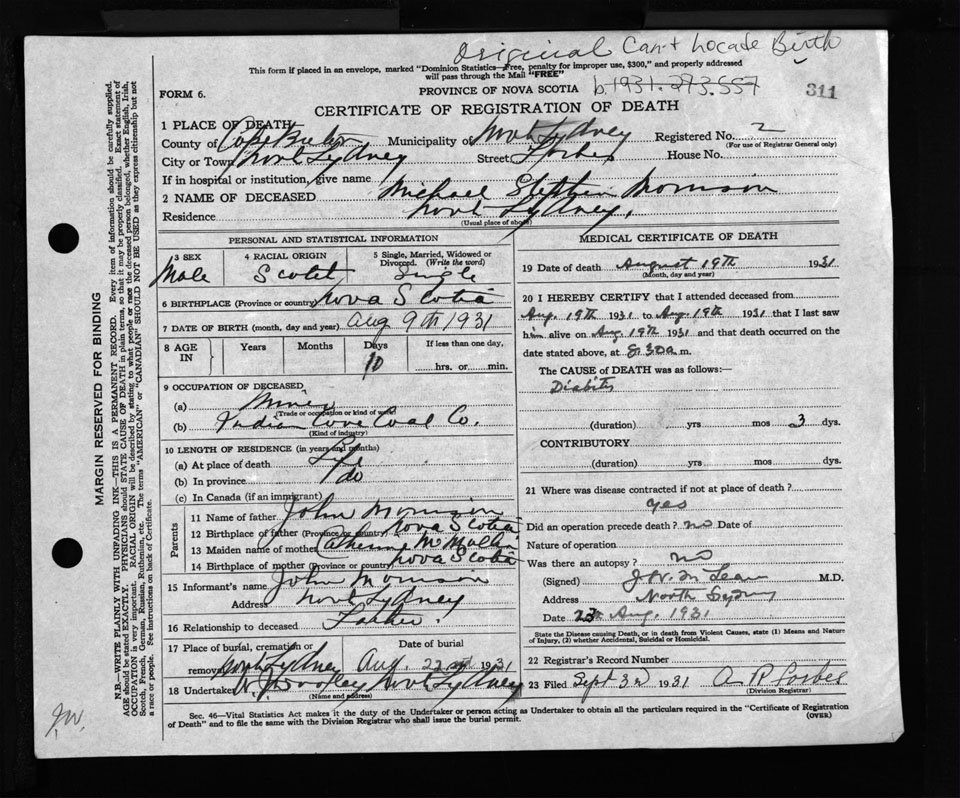 Original Can't Locate Birth
This form if placed in an envelope, marked "Dominion Statistics—Free, penalty for improper use, $300," and properly addressed
will pass through the Mail "FREE"
b.1931.273.557
FORM 6.
PROVINCE OF NOVA SCOTIA
311
CERTIFICATE OF REGISTRATION OF DEATH
1 PLACE OF DEATH
County of Cape Breton Municipality of North Sydney Registered No. 2
(For use of Registrar General only)
City or Town North Sydney Street Forbes House No.
If in hospital or institution, give name
2 NAME OF DECEASED Michael Stephen Morrison
Residence North Sydney.
(Usual place of abode)
PERSONAL AND STATISTICAL INFORMATION
3 SEX 4 RACIAL ORIGIN 5 Single, Married, Widowed or Divorced. (Write the word)
Male Scotch Single
6 BIRTHPLACE (Province or country) Nova Scotia
7 DATE OF BIRTH (month, day and year) Aug 9th 1931
8 AGE IN Years Months Days If less than one day,
10 hrs. or min.
9 OCCUPATION OF DECEASED
(a) Miner
(Trade or occupation or kind of work)
(b) Indian Cove Coal Co.
(Kind of industry)
10 LENGTH OF RESIDENCE (in years and months)
(a) At place of death Life
(b) In province do
(c) In Canada (if an immigrant)
Parents
11 Name of father John Morrison
12 Birthplace of father (Province or country) Nova Scotia
13 Maiden name of mother Catherine McMullin
14 Birthplace of mother (Province or country) Nova Scotia
15 Informant's name John Morrison
Address North Sydney
16 Relationship to deceased Father.
17 Place of burial, cremation or Date of burial
removal North Sydney Aug. 22nd 1931
18 Undertaker North Sydney
(Name and address)
MEDICAL CERTIFICATE OF DEATH
19 Date of death August 19th 1931
(Month, day and year)
20 I HEREBY CERTIFY that I attended deceased from
Aug. 19th 1931 to Aug. 19th 1931 that I last saw
him alive on Aug. 19th 1931 and that death occurred on
date stated above, at 8.30a m.
The CAUSE of DEATH was as follows:
Diabites
(duration) yrs mos 3 dys.
CONTRIBUTORY
(duration) yrs mos dys.
21 Where was disease contracted if not at place of death?
yes
Did an operation precede death? no Date of
Nature of operation
Was there an autopsy? no
(Signed) M.D.
Address North Sydney
Date 23 Aug. 1931
State the Disease causing Death, or in death from Violent Causes, state (1) Means and Nature
of Injury, (2) whether Accidental, Suicidal or Homicidal.
22 Registrar's Record Number
23 Filed Sept 3rd 1931 A R Forbes
(Division Registrar)
Sec. 46—Vital Statistics Act makes it the duty of the Undertaker or person acting as Undertaker to obtain all the particulars required in the "Certificate of Registration
of Death" and to file the same with the Division Registrar who shall issue the burial permit.
(OVER)
MARGIN RESERVED FOR BINDING
N.B.—WRITE PLAINLY WITH UNFADING INK—THIS IS A PERMANENT RECORD. Every item of information should be carefully supplied.
AGE should be stated EXACTLY. PHYSICIANS should STATE CAUSE OF DEATH in plain terms, so that it may be properly classified. Exact statement of
OCCUPATION is very important. RACIAL ORIGIN will be described by stating to what people or race the deceased person belonged, whether English, Irish,
Scotch, French, German, Russian, Ruthenian, etc. The terms "AMERICAN" or "CANADIAN" SHOULD NOT BE USED as they express citizenship but not
a race or people. See instructions on back of Certificate.